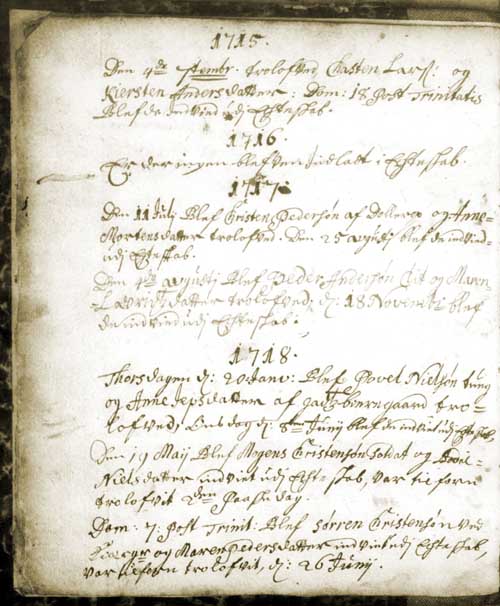 1715.
Den 4de ptembr. trolofved Chasten Lars: og
Kiersten Andersdatter: Dom: 18 post Trinitatis
blef de indvied udj Echteskab.
1716.
Er der ingen blefven indladt i Echteskab.
1717.
Den 11 Julij blef Christen Pedersøn af og Anne
Mortensdatter trolofved. den 25 augustj blef de indvied
udj Echteskab.
Den 4de augustj blef Peder Andersøn og Maren
Lauridsdatter trolofved, d: 18 Novembr blef
de indvied udj Echteskab.
1718.
Thorsdagen d: 20 Janv: blef Povel Nielsøn
og Anne Jepsdatter af tro-
lofved, Onsdag d: 8de Junij blef de indviet udj Echteskab
Den 19 Maij blef Mogens Christensøn Soldat og Bodil
Nielsdatter indviet udj Echteskab, var tilforn
trolofvit 2den Paaskedag.
Dom: 7: post Trinit: blef Sørren Christensøn ved
og Maren Pedersdatter indviet udj Echteskab,
var tilforn trolofvit, d: 26 Junij.